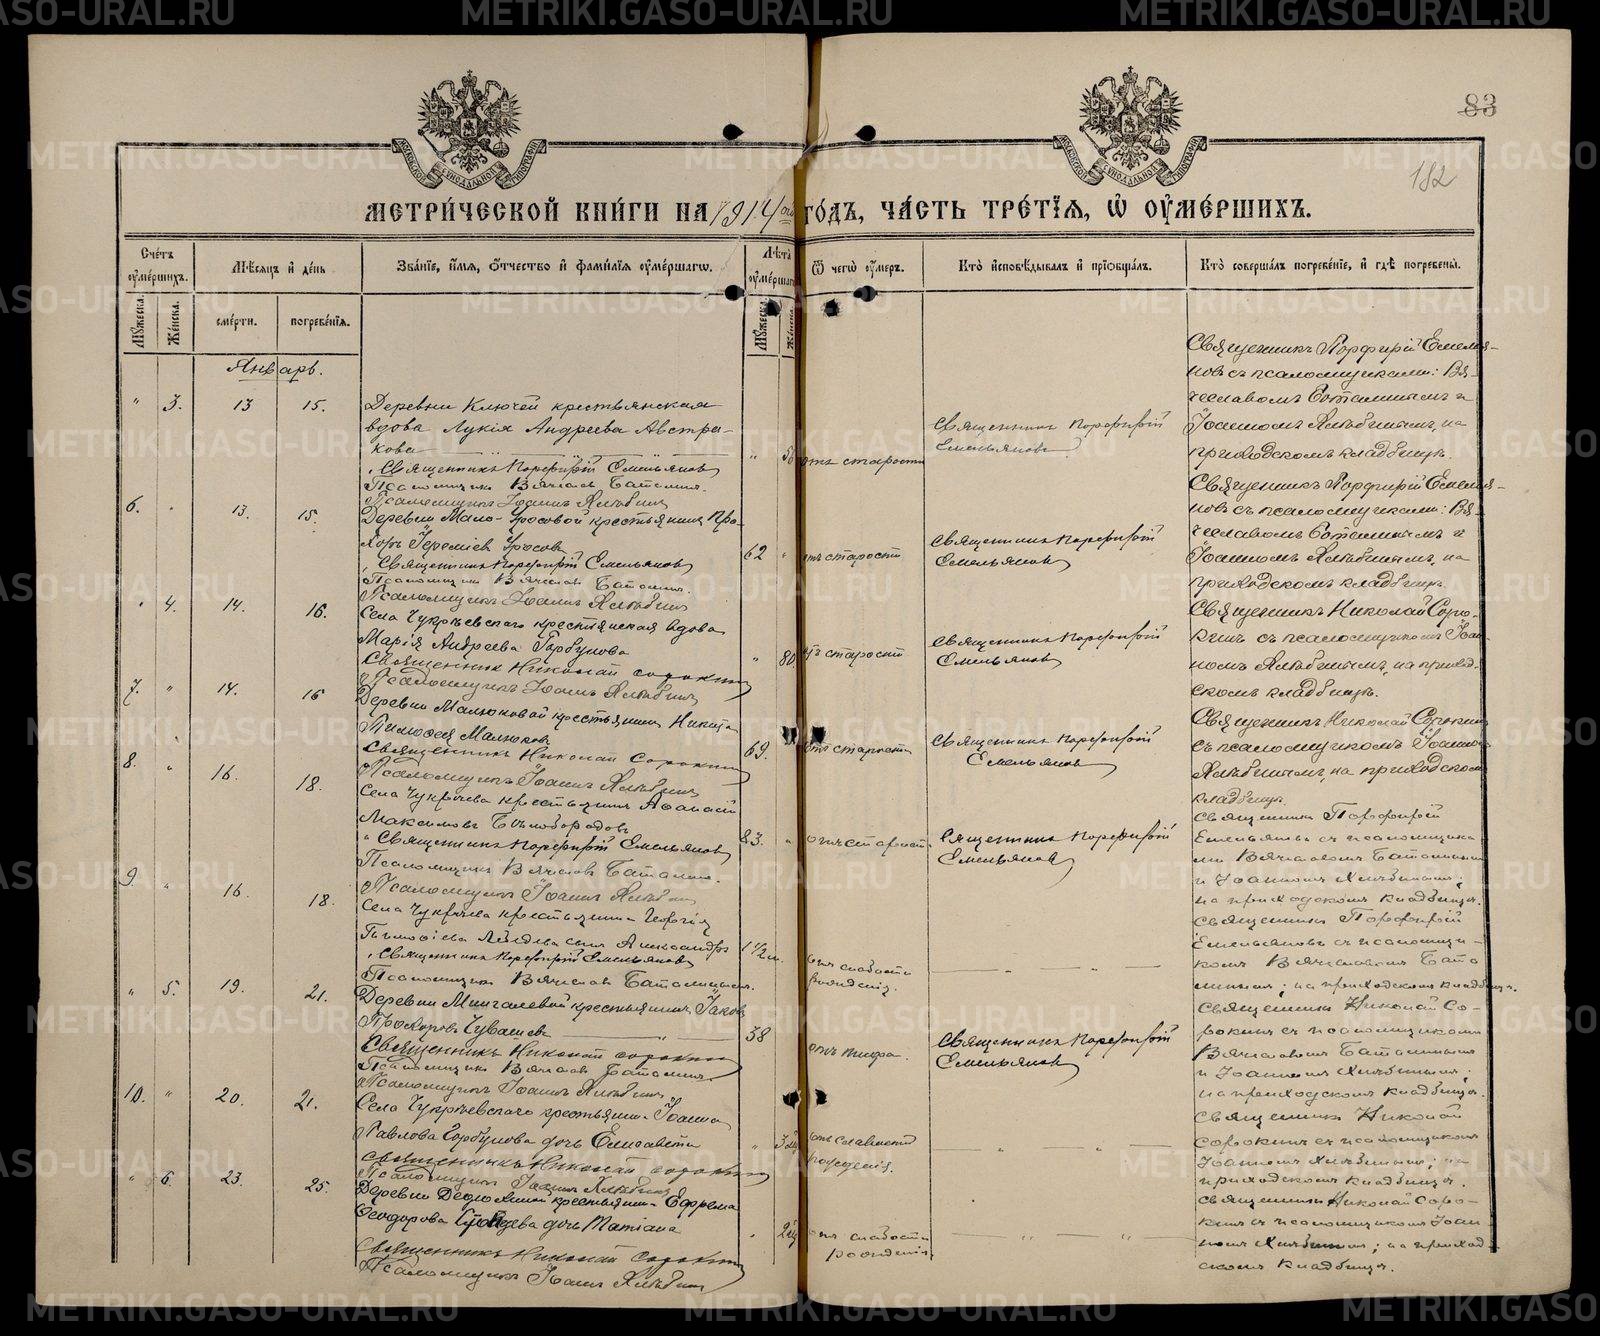 83
182
МЕТРИ́ЧЕСКОЙ КНИ́ГИ НА 1914 ГО́ДЪ, ЧА́СТЬ ТРЕ́ТІЯ, Ѡ ОУМЕ́РШИХЪ.
Счетъ оумершихъ.
Мѣсяцъ и день
Званіе, имя, отчество и фамилія оумершагѡ.
Лѣта оумершагѡ
Ѿ чегѡ оумеръ.
Кто исповѣдывалъ и пріобщалъ.
Кто совершалъ погребеніе, и гдѣ погребены.
Мужеска.
Женска.
смерти.
погребенія.
Мужеска.
Женска.
Январь.
" 3. 13 15.
Деревни Ключей крестьянская
вдова Лукія Андреева Австра-
кова
Священникъ Порфирій Емельяновъ
Псаломщикъ Вячеславъ
Псаломщикъ Іоаннъ Хлѣбинъ
" отъ старости
Священникъ Порфирій
Емельяновъ
Священникъ Порфирій Емелья-
новъ съ псаломщиками: Вя-
чеславомъ и
Іоанномъ Хлѣбинымъ, на
приходскомъ кладбищѣ.
6. " 13. 15.
Деревни Мало- крестьянинъ Про-
хоръ Іереміевъ
Священникъ Порфирій Емельяновъ
Псаломщикъ Вячеславъ
Псаломщикъ Іоаннъ Хлѣбинъ
62 " отъ старости
Священникъ Порфирій
Емельяновъ
Священникъ Порфирій Емелья-
новъ съ псаломщиками: Вя-
чеславомъ и
Іоанномъ Хлѣбинымъ, на
приходскомъ кладбищѣ.
" 4. 14. 16.
Села Чукрѣевскаго крестьянская вдова
Марія Андреева Горбунова
Священникъ Николай Сорокинъ
Псаломщикъ Іоаннъ Хлѣбинъ
" 80 отъ старости
Священникъ Порфирій
Емельяновъ
Священникъ Николай Соро-
кинъ съ псаломщикомъ Іоан-
номъ Хлѣбинымъ, на приход-
скомъ кладбищѣ.
7. " 14. 16
Деревни Малюковой крестьянинъ Никита
Малюковъ
Священникъ Николай Сорокинъ
Псаломщикъ Іоаннъ Хлѣбинъ
69. отъ старости
Священникъ Порфирій
Емельяновъ
Священникъ Николай Сорокинъ
съ псаломщикомъ Іоанномъ
Хлѣбинымъ, на приходскомъ
кладбищѣ.
8. " 16. 18.
Села Чукрѣева крестьянинъ Аѳанасій
Максимовъ Бѣлобородовъ
Священникъ Порфирій Емельяновъ
Псаломщикъ Вячеславъ
Псаломщикъ Іоаннъ Хлѣбинъ
83. " отъ старост.
Священникъ Порфирій
Емельяновъ
Священникъ Порфирій
Емельяновъ съ псаломщика-
ми Вячеславомъ
и Іоанномъ Хлѣбинымъ;
на приходскомъ кладбищѣ.
9. " 16. 18.
Села Чукрѣева крестьянина Георгія
сынъ Александръ
Священникъ Порфирій Емельяновъ
Псаломщикъ Вячеславъ
1 1/2 м. отъ слабости
рожденія.
Священникъ Порфирій
Емельяновъ съ псаломщи-
комъ Вячеславомъ
на приходскомъ кладбищѣ.
" 5. 19. 21.
Деревни Мингалевой крестьянинъ Іаковъ
Прохоровъ Чувашевъ
Священникъ Николай Сорокинъ
Псаломщикъ Вячеславъ
Псаломщикъ Іоаннъ Хлѣбинъ
38 отъ тифа.
Священникъ Порфирій
Емельяновъ
Священникъ Николай Со-
рокинъ съ псаломщиками
Вячеславомъ
и Іоанномъ Хлѣбинымъ;
на приходскомъ кладбищѣ.
10. " 20. 21.
Села Чукрѣевскаго крестьянина Іоанна
Павлова Горбунова дочь Елисавета
Священникъ Николай Сорокинъ
Псаломщикъ Іоаннъ Хлѣбинъ
" отъ слабости
рожденія.
Священникъ Николай
Сорокинъ съ псаломщикомъ
Іоанномъ Хлѣбинымъ; на
приходскомъ кладбищѣ.
" 6. 23. 25.
Деревни крестьянина Ефрема
Ѳеодорова дочь Татіана
Священникъ Николай Сорокинъ
Псаломщикъ Іоаннъ Хлѣбинъ
отъ слабости
рожденія.
Священникъ Николай Соро-
кинъ съ псаломщикомъ Іоан-
номъ Хлѣбинымъ; на приход-
скомъ кладбищѣ.
METRIKI.GASO-URAL.RU